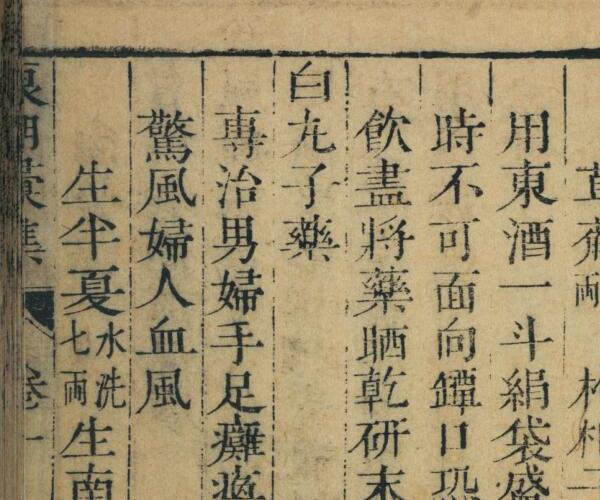 兩
用東酒一斗絹袋盛
時不可面向罈口恐
飲盡將藥晒乾研末
白丸子藥
專治男婦手足癱瘓
驚風婦人血風
生半夏水洗七兩生南
集 卷一